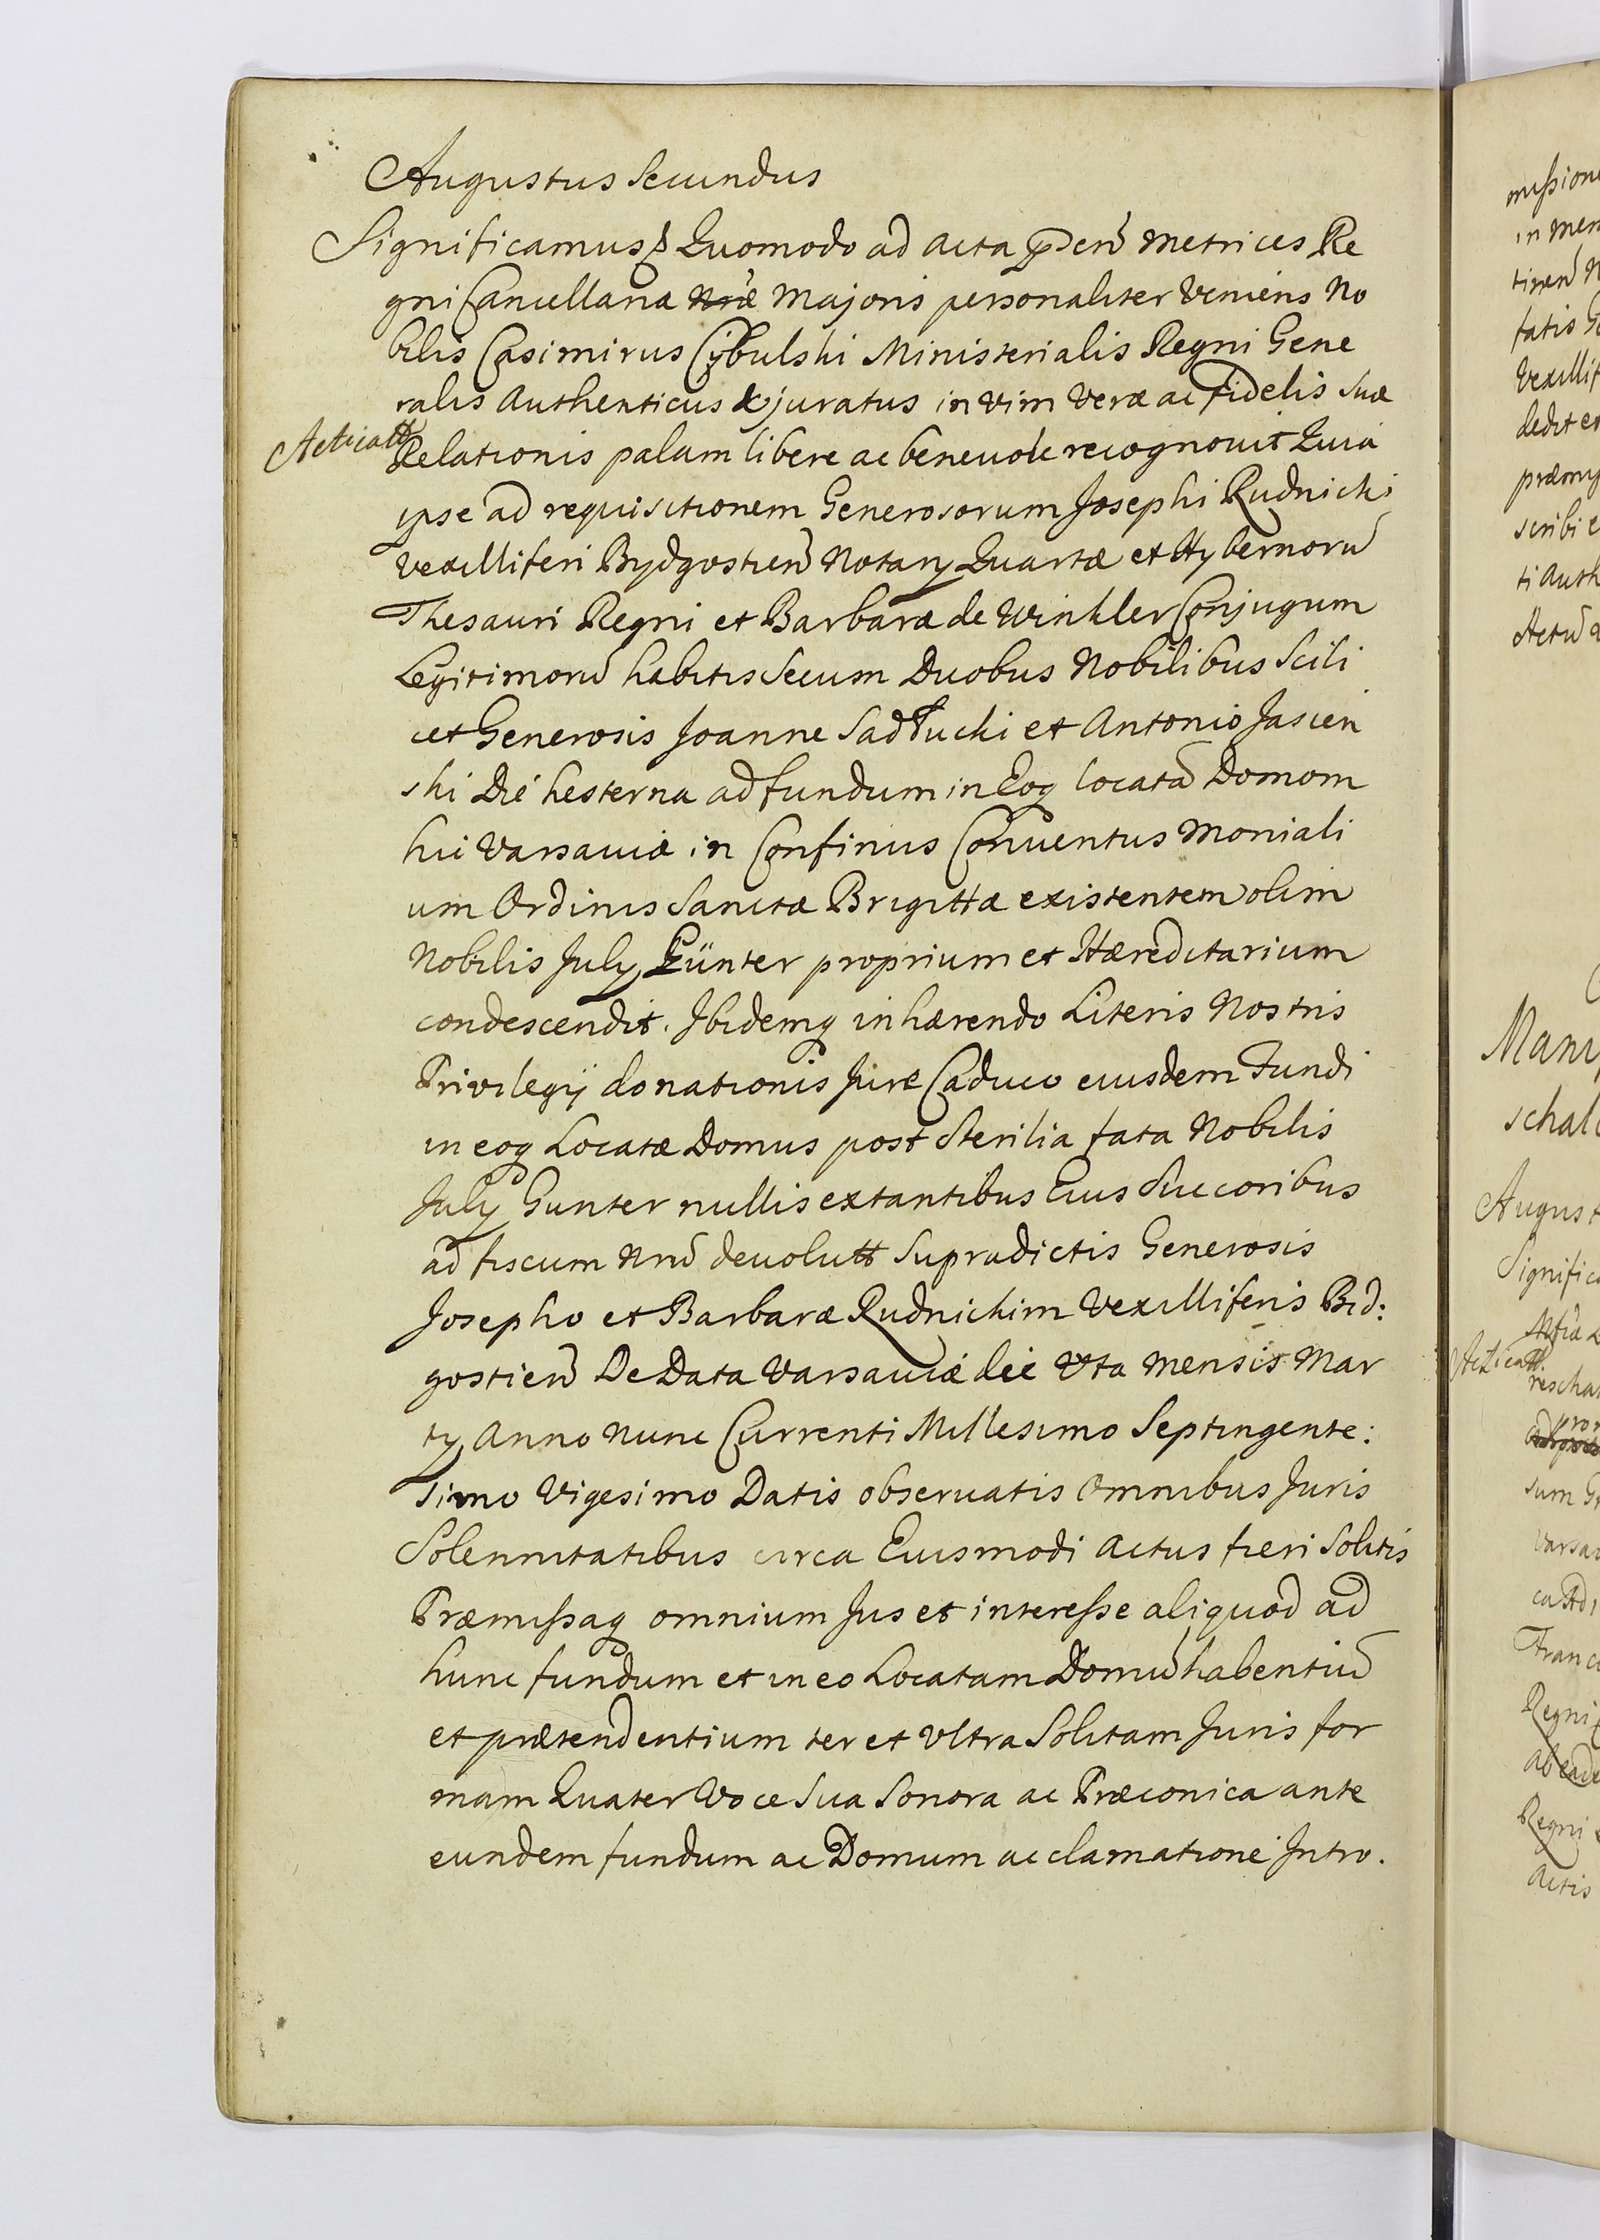 Augustus Secundus
Significamus Quomodo ad acta pnden̄ Metrices Re
gni Cancellariæ Nræ Majoris personaliter veniens No
bilis Casimirus Cÿbulski Ministerialis Regni Gene
ralis Authenticus & juratus in vim veræ ac fidelis suæ
Acticatt
Relationis palam libere ac beneuole recognouit Quia
ipse ad requisitionem Generosorum Josephi Rudnicki
Vexilliferi Bydgostien̄ Notarÿ Quartæ et Hybernorū
Thesauri Regni et Barbaræ de Winkler Conjugum
Legitimorū habitis secum Duobus Nobilibus Scili
cet Generosis Joanne Sadłucki et Antonio Jasien
ski Die hesterna ad fundum in Eoq locatā Domom
hic Varsauiæ in Confiniis Conuentus Moniali
um Ordinis Sanctæ Brigittæ existentem olim
Nobilis Julÿ Günter proprium et Hæreditarium
condescendit. Ibidemq inhærendo Literis Nostris
Privilegÿ donationis Jure Caduco eiusdem Fundi
in eoq Locatæ Domus post sterilia fata Nobilis
Julÿ Gunter nullis extantibus Eius Succoribus
ad fiscum Nrū deuolutt Supradictis Generosis
Josepho et Barbaræ Rudnickim Vexilliferis Bid:
gostien̄ De Data Varsauiæ die Vta Mensis Mar
tÿ Anno nunc Currenti Millesimo Septingente:
simo Vigesimo Datis obseruatis Omnibus Juris
Solennitatibus circa Eiusmodi Actus fieri Solitis
Præmissaq omnium Jus et interesse aliquod ad
hunc fundum et in eo Locatam Domū habentiū
et prætendentium ter et Vltra Solitam Juris for
mam Quater Voce Sua Sonora ac Præconica ante
eundem fundum ac Domum acclamatione Intro.